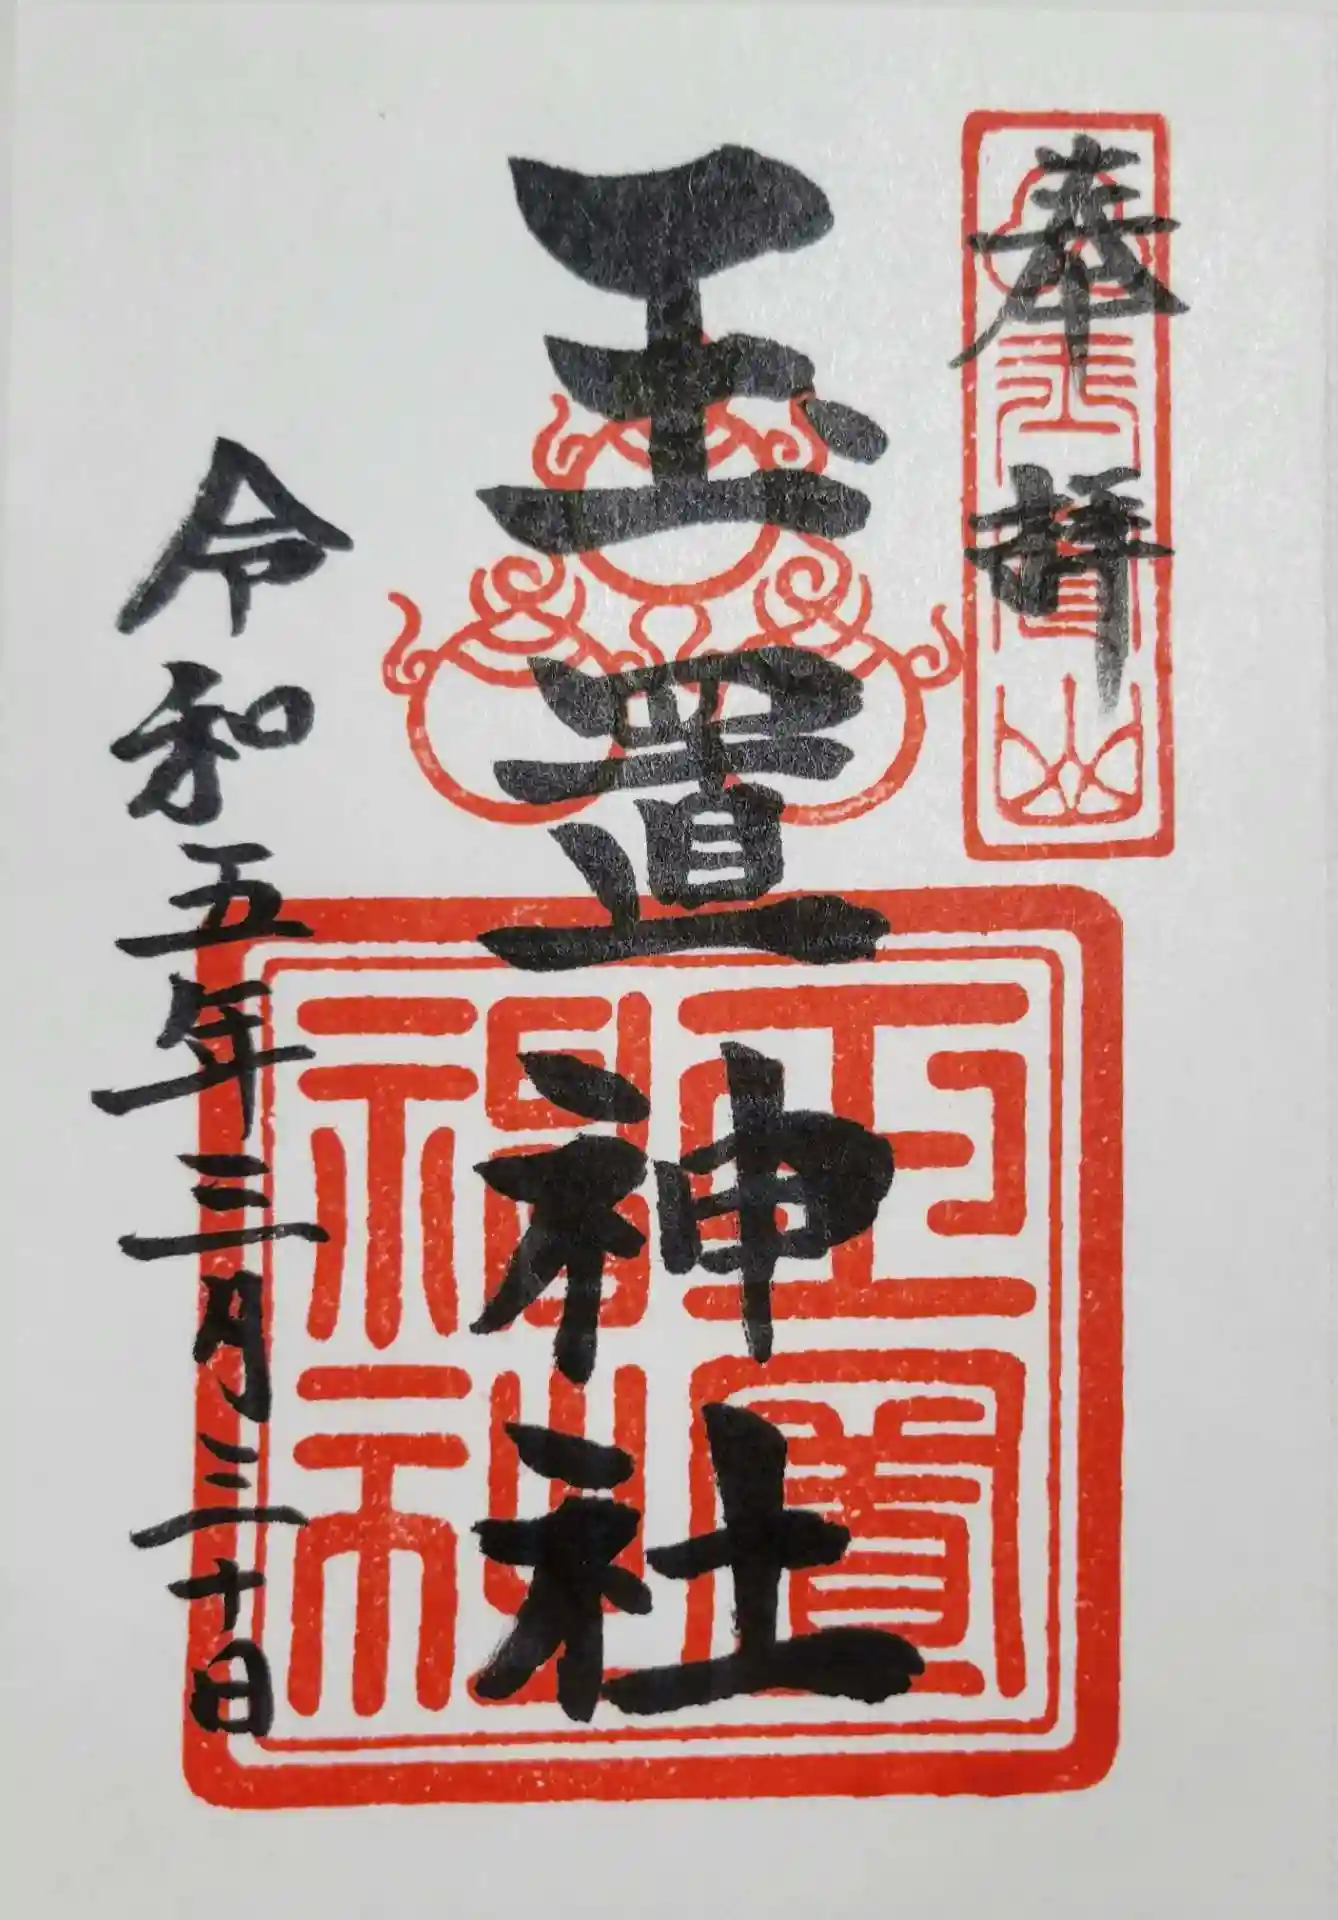 奉拝
玉置神社
令和五年三月三十日
玉置神社